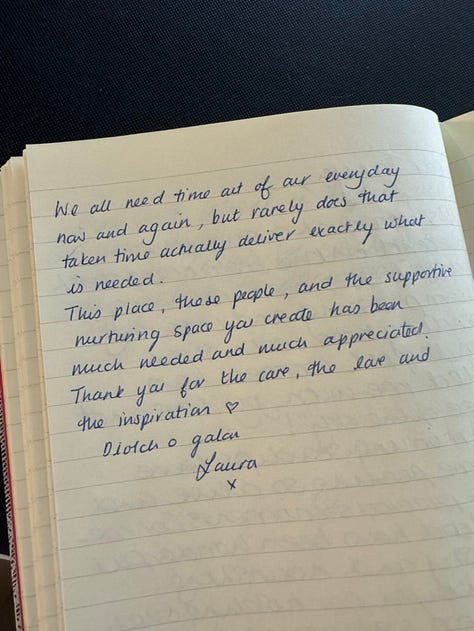 We all need time out of our everyday
now and again, but rarely does that
taken time actually deliver exactly what
is needed.
This place, these people, and the supportive
nurturing space you create has been
much needed and much appreciated.
Thank you for the care, the love and
the inspiration ♡
Diolch o galon
Laura
x